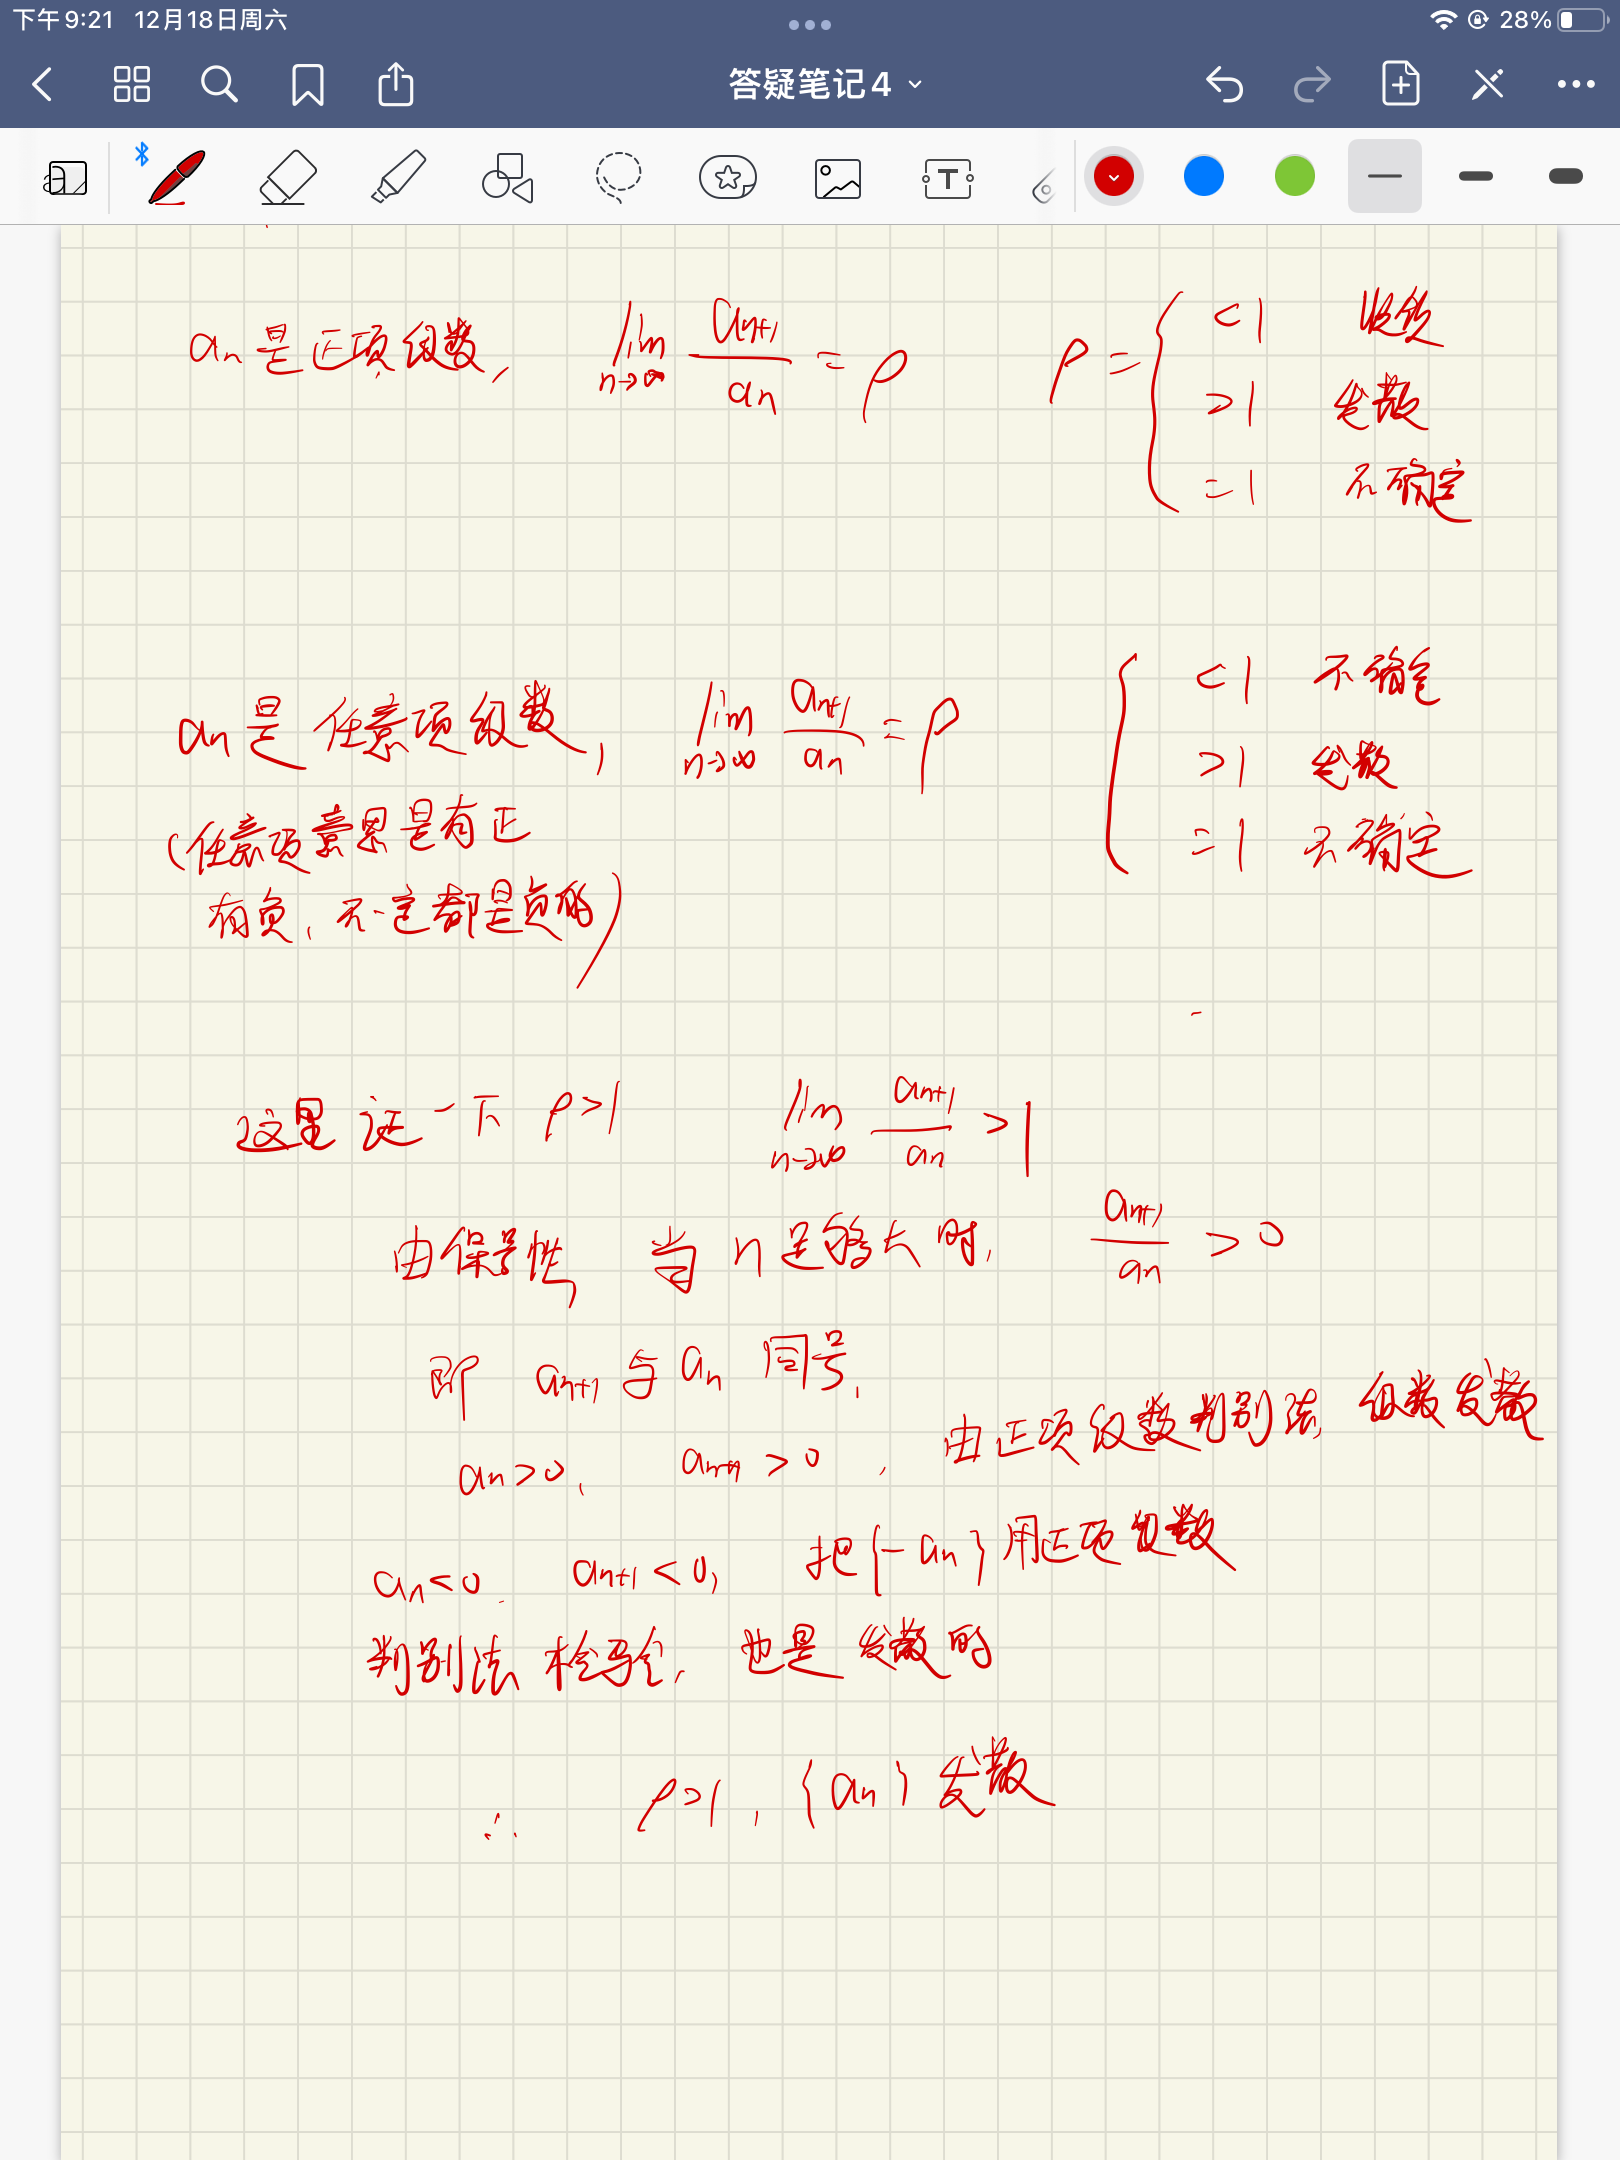 下午9:21 12月18日周六
28%
答疑笔记4
T
an是正项级数, lim n→∞ an+1/an = ρ ρ = { <1 收敛
>1 发散
=1 不确定
an是任意项级数, lim n→∞ an+1/an = ρ { <1 不确定
>1 发散
=1 不确定
(任意项意思是有正
有负, 不一定都是负的)
这里证一下 ρ>1 lim n→∞ an+1/an >1
由保号性, 当n足够大时, an+1/an > 0
即 an+1与an 同号,
an>0, an+1 > 0, 由正项级数判别法, 级数发散
an<0, an+1<0, 把{-an}用正项级数
判别法检验, 也是发散的
∴ ρ>1, {an}发散